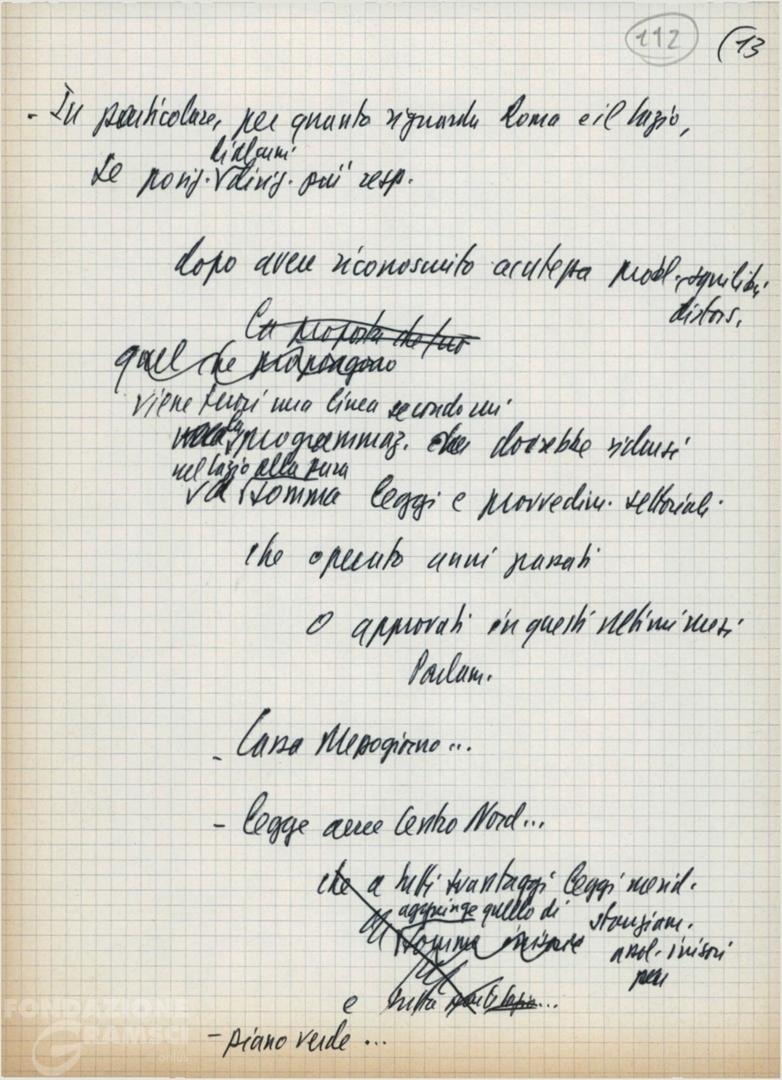 112 (13
- In particolare, per quanto riguarda Roma e il Lazio,
di alcuni
Le posiz. dirig. più resp.
dopo avere riconosciuto acutezza probl., squilibri,
distors.
La proposta che
quel che propongono
viene fuori una linea secondo cui
la programmaz. dovrebbe ridursi
nel Lazio alla pura
somma leggi e provvedim. settoriali
che operato anni passati
o approvati in questi ultimi mesi
Parlam.
- Cassa Mezzogiorno...
- Legge aree Centro Nord...
che a tutti svantaggi leggi merid.
aggiunge quello di stanziam.
somma irrisorie assol. irrisori
per
e tutta ...
- piano verde ...
FONDAZIONE
GRAMSCI